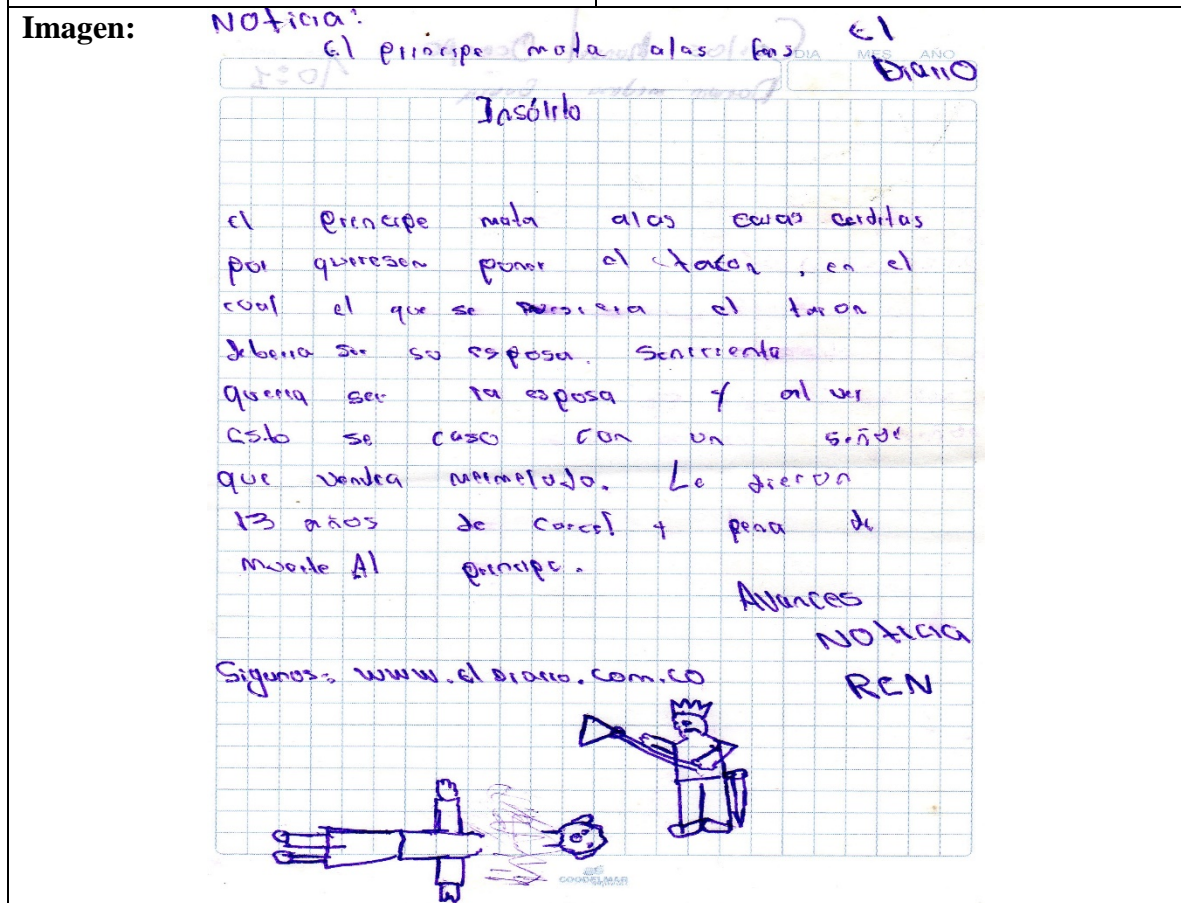 Imagen:
Noticia:
El principe mata alas fans
El
Diario
DIA MES AÑO
Insólito
el principe mata alas
por queresen poner el tacon, en el
cual el que se el tacon
deberia ser su esposa. Senicienta
queria ser la esposa y al ver
esto se caso con un señor
que vendia mermelada. Le dieron
13 años de carcel + pena de
muerte Al principe.
Avances
Noticia
RCN
Sigunos: www.el Diario.com.co